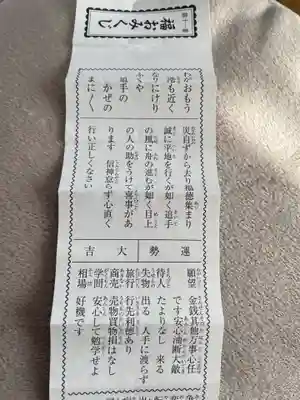 第十一番
福おみくじ
わがおもう
港も近く
なりにけり
ふくや
追手の
かぜの
まに〳〵
災自ずから去り福徳集まり
誠に平地を行くが如く追手
の風に舟の進むが如く目上
の人の助をうけて喜事があ
ります 信神怠らず心直く
行い正しくなさい
運勢
大吉
願望
金銭其他万事心任
です安心油断大敵
待人
たよりなし 来る
失物
出る 人手に渡らず
旅行
行先利徳あり
商売
売物買物損はなし
学問
安心して勉学せよ
相場
好機です